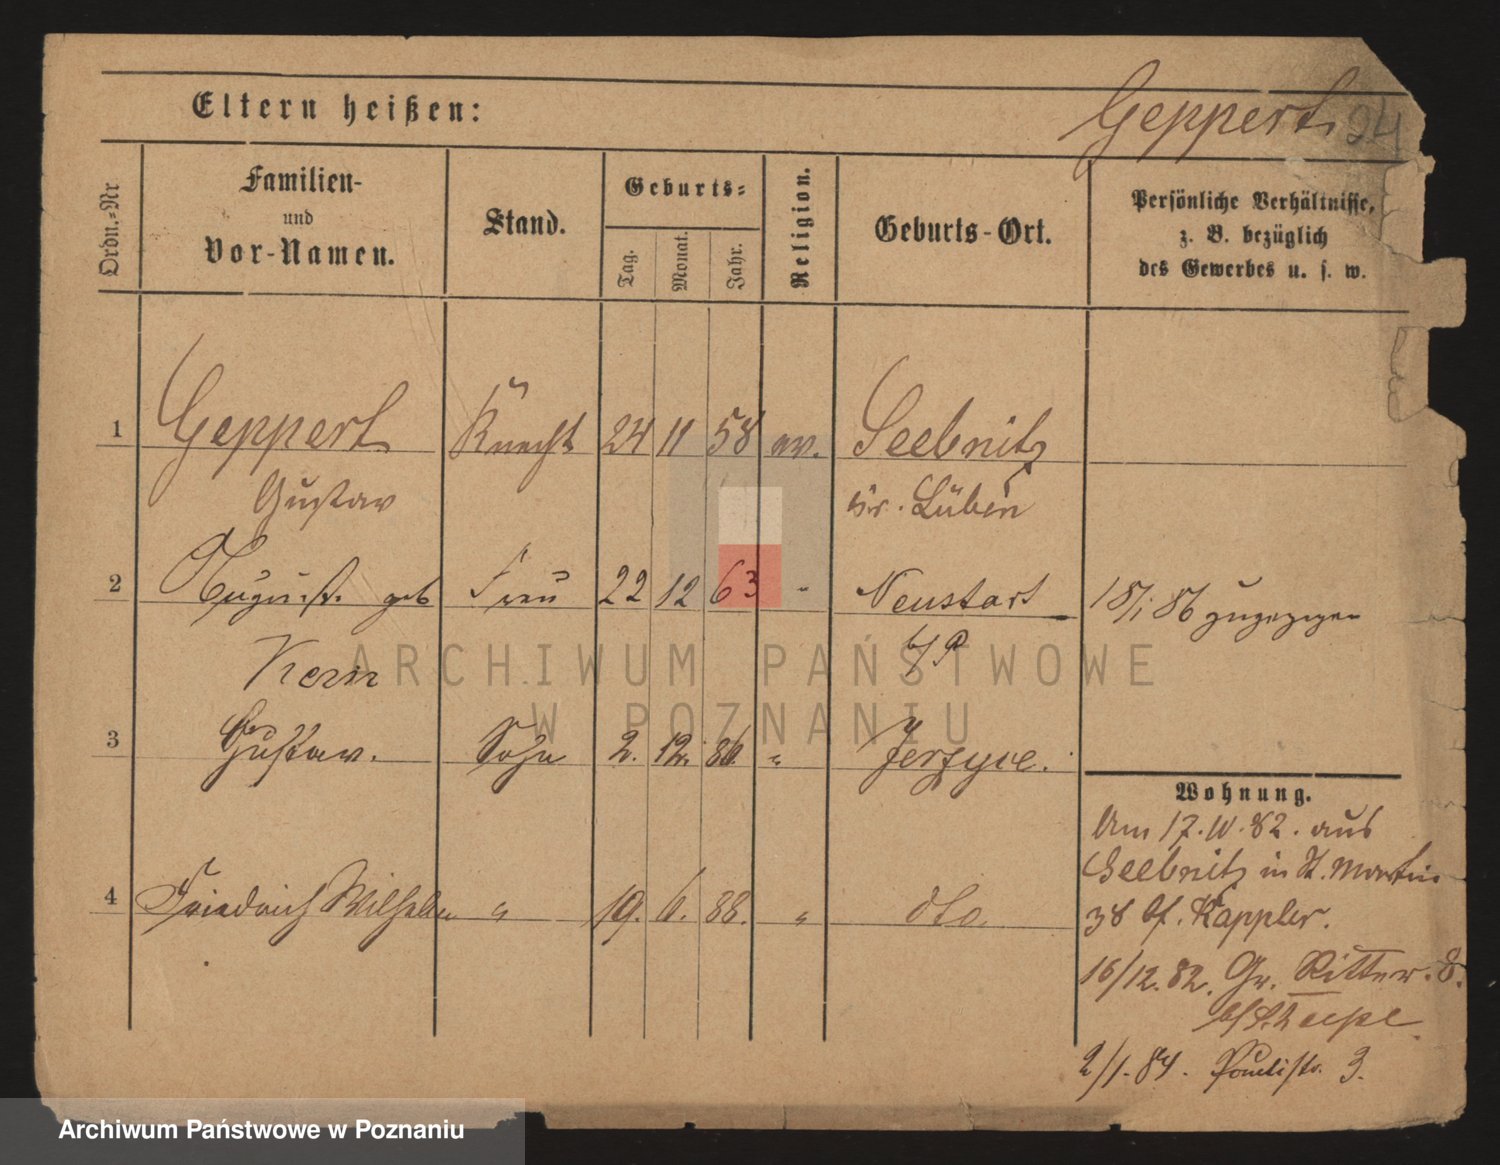 Eltern heißen:
Geppert. 94
Ordn.-Nr
Familien-
und
Vor-Namen.
Stand.
Geburts-
Tag.
Monat.
Jahr.
Religion.
Geburts-Ort.
Persönliche Verhältnisse,
z. B. bezüglich
des Gewerbes u. s. w.
1 Geppert Knecht 24 11 58 ev. Seebnitz
Gustav Kr. Lüben
2 August. geb Frau 22 12 63 " Neustart 18/1 86 zugezogen
Kern b/P
3 Gustav. Sohn 2. 12. 86. " Jerzyce.
Wohnung.
Am 17. 11. 82. aus
Seebnitz in St. Martin
4 Friedrich Wilhelm " 19. 6. 88. " dto.
38 bf. Kappler.
16/12. 82. Gr. Ritter. 8.
2/1. 84. Paulistr. 3.
ARCHIWUM PAŃSTWOWE
W POZNANIU
Archiwum Państwowe w Poznaniu